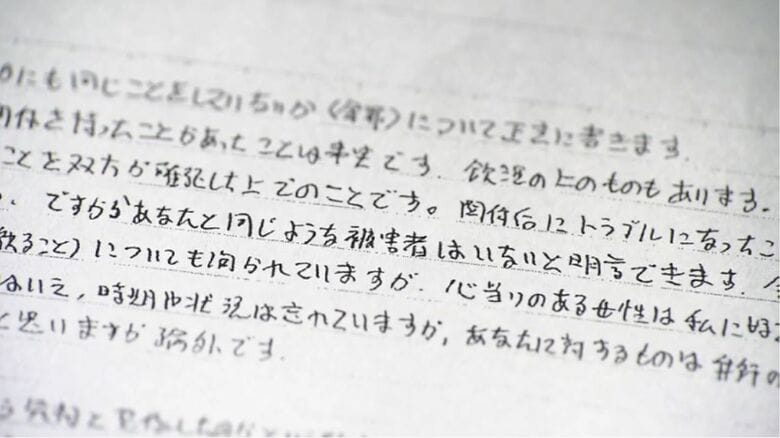 にも同じことをしていないか(余罪)について正直に書きます。
関係を持ったことがあったことは事実です。飲酒の上のものもあります。
ことを双方が確認した上でのことです。関係后にトラブルになったこ
、ですからあなたと同じような被害者はいないと明言できます。
ること)についても伺われていますが、心当りのある女性は私に好
はいえ、時期や状況は忘れていますが、あなたに対するものは弁行の
と思いますが論外です。